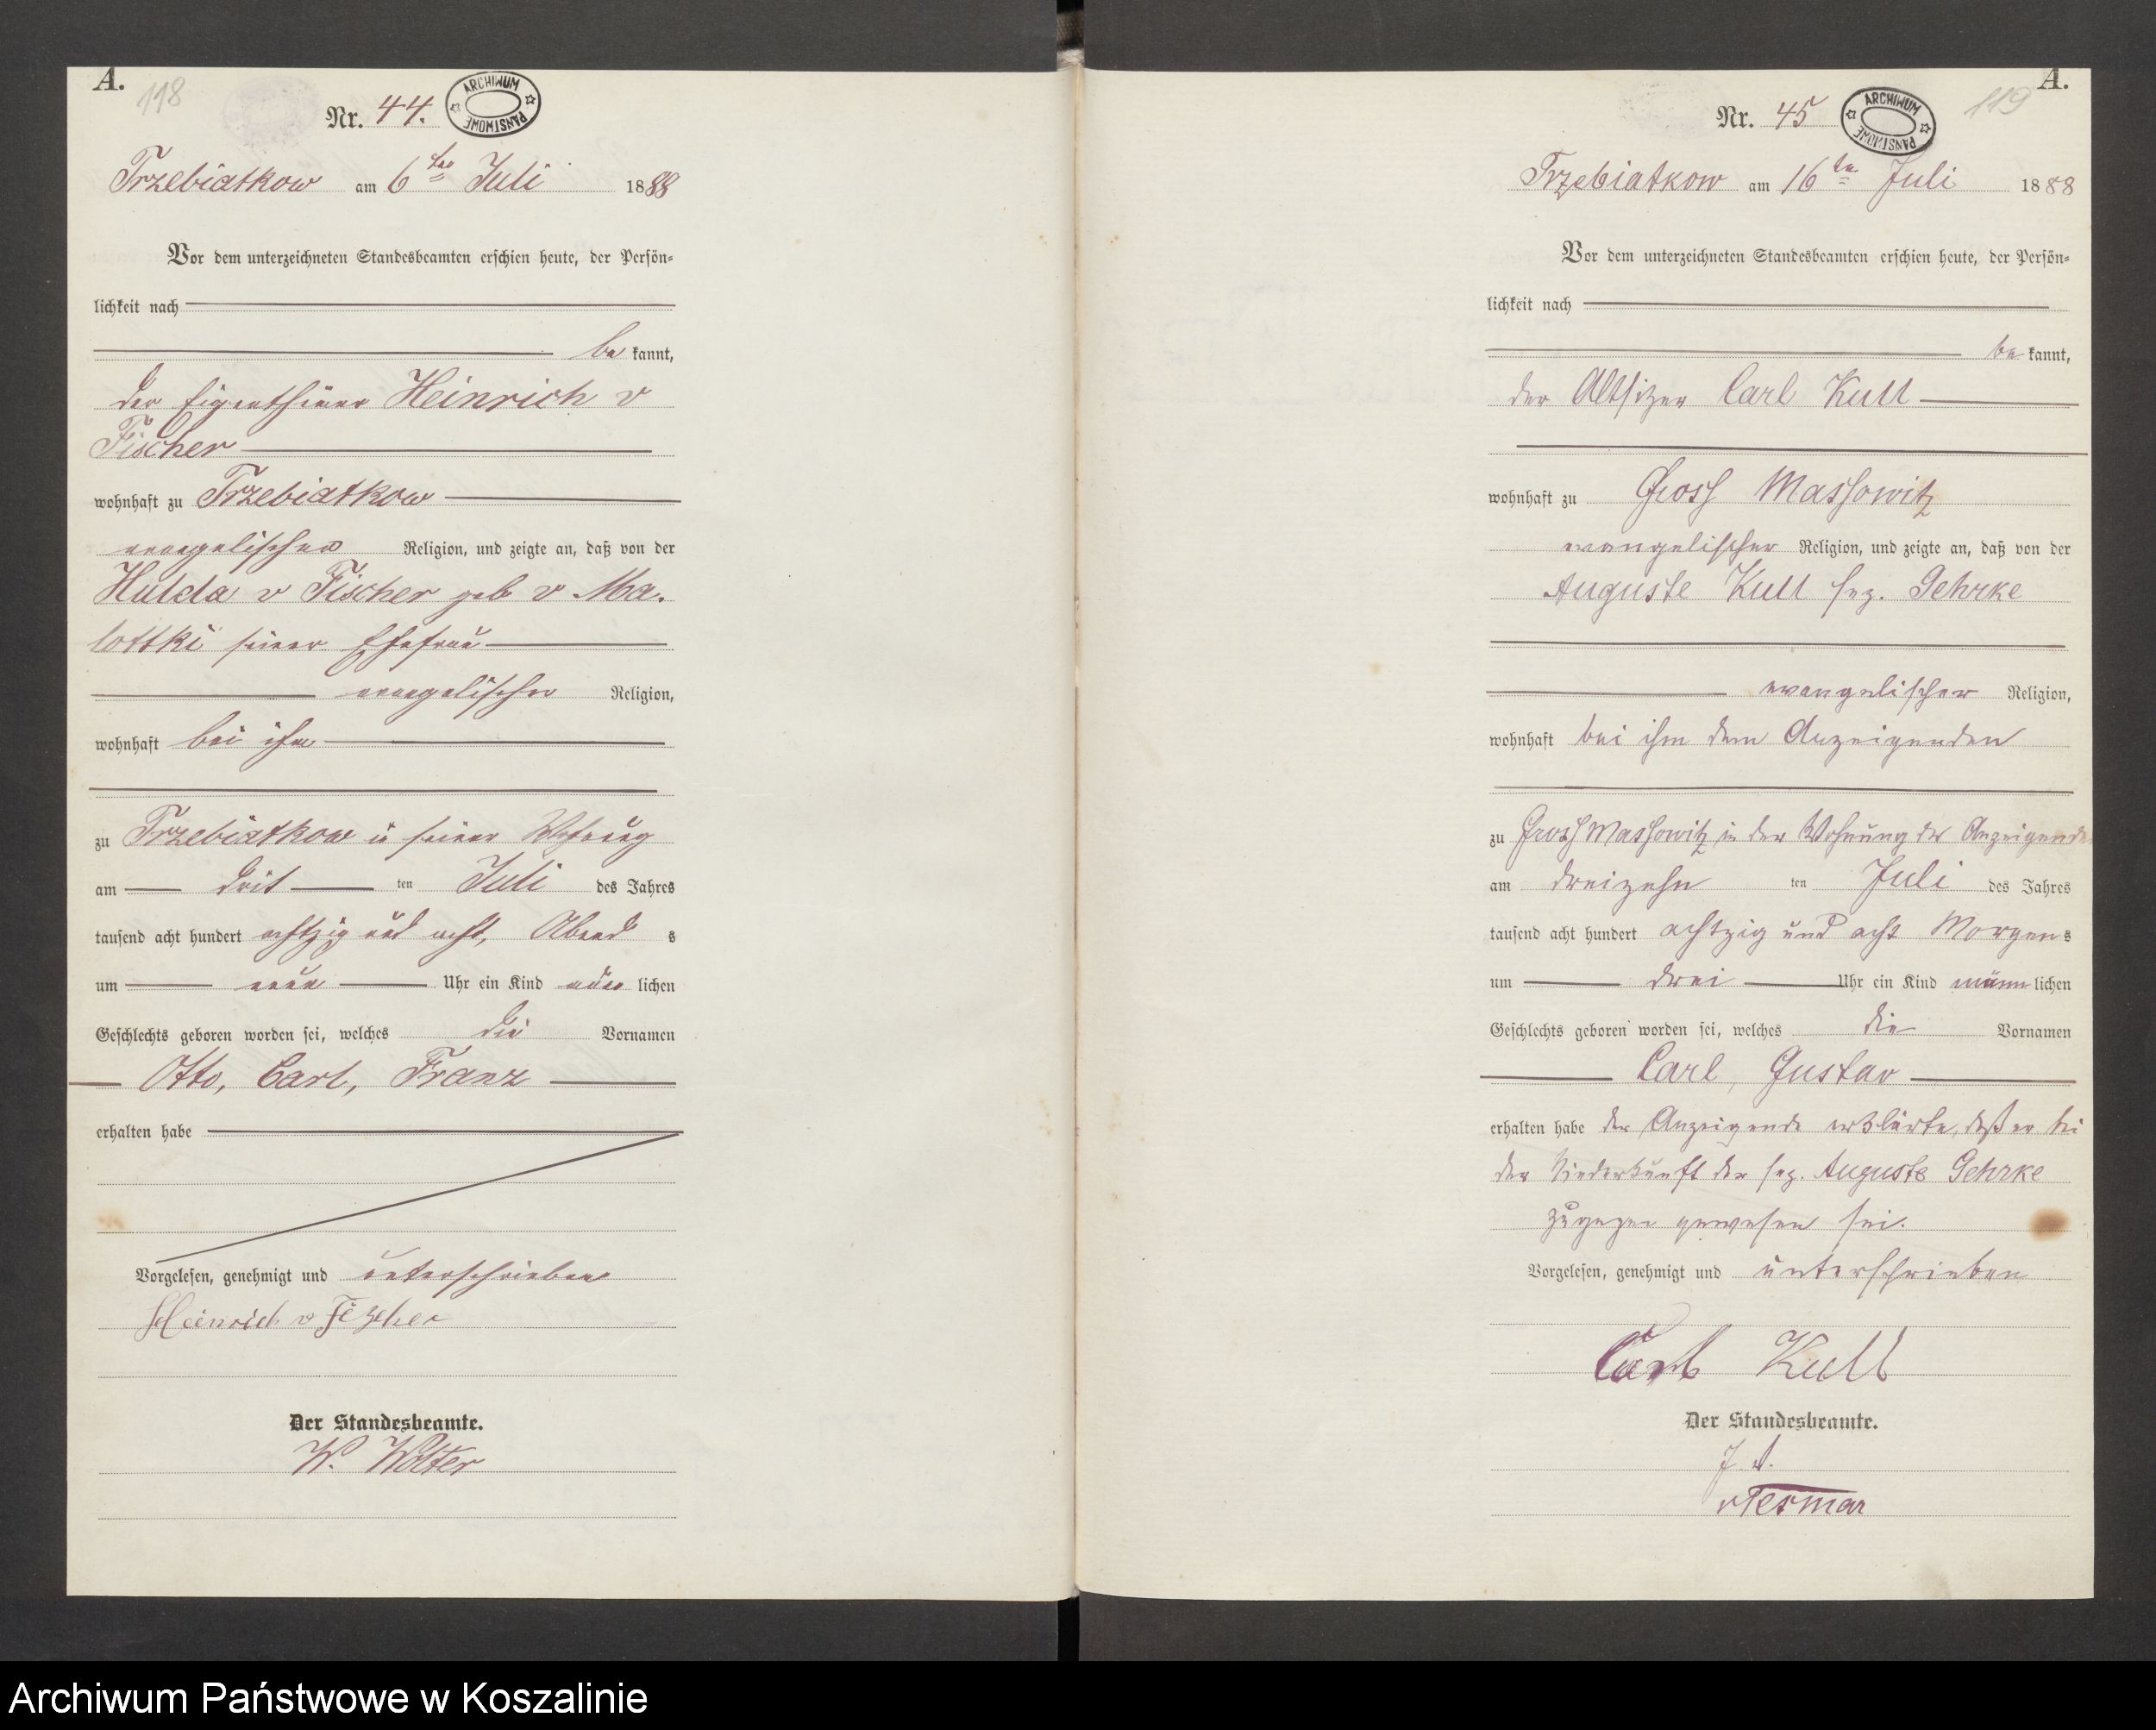 A.
118
Nr. 44.
ARCHIWUM PAŃSTWOWE
Trzebiatkow am 6ten Juli 1888
Vor dem unterzeichneten Standesbeamten erschien heute, der Persön-
lichkeit nach
be kannt,
der Eigenthümer Heinrich v
Fischer
wohnhaft zu Trzebiatkow
evangelischer Religion, und zeigte an, daß von der
Hulda v Fischer geb v Ma-
lottki seiner Ehefrau
evangelischer Religion,
wohnhaft bei ihm
zu Trzebiatkow in seiner Wohnung
am drit ten Juli des Jahres
tausend acht hundert achtzig und acht, Abend s
um neun Uhr ein Kind män lichen
Geschlechts geboren worden sei, welches die Vornamen
Otto, Carl, Franz
erhalten habe
Vorgelesen, genehmigt und unterschrieben
Heinrich v Fischer
Der Standesbeamte.
W. Wolter
A.
119
Nr. 45
ARCHIWUM PAŃSTWOWE
Trzebiatkow am 16ten Juli 1888
Vor dem unterzeichneten Standesbeamten erschien heute, der Persön-
lichkeit nach
be kannt,
der Altsitzer Carl Kull
wohnhaft zu Gross Massowitz
evangelischer Religion, und zeigte an, daß von der
Auguste Kull sep. Gehrke
evangelischer Religion,
wohnhaft bei ihm dem Anzeigenden
zu Gross Massowitz in der Wohnung des Anzeigenden
am dreizehn ten Juli des Jahres
tausend acht hundert achtzig und acht Morgen s
um drei Uhr ein Kind männ lichen
Geschlechts geboren worden sei, welches die Vornamen
Carl, Gustav
erhalten habe der Anzeigende erklärte, daß er bei
der Niederkunft der sep. Auguste Gehrke
zugegen gewesen sei.
Vorgelesen, genehmigt und unterschrieben
Carl Kull
Der Standesbeamte.
J. V.
v Tesmar
Archiwum Państwowe w Koszalinie